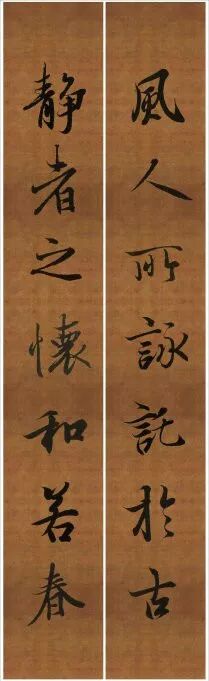 風人所詠託於古
静者之懷和若春